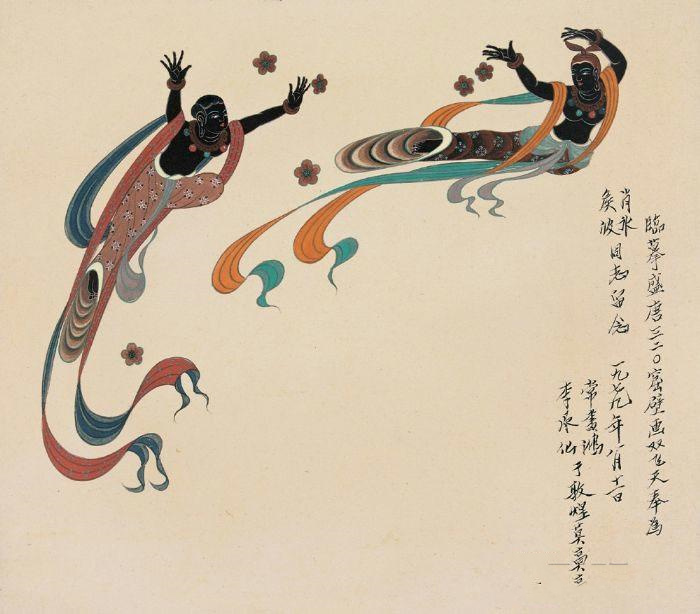 臨摹盛唐三二〇窟壁画双飞天奉為
肖氷
侯波
同志留念 一九七九年八月十一日
常書鴻
李承仙
于敦煌莫高